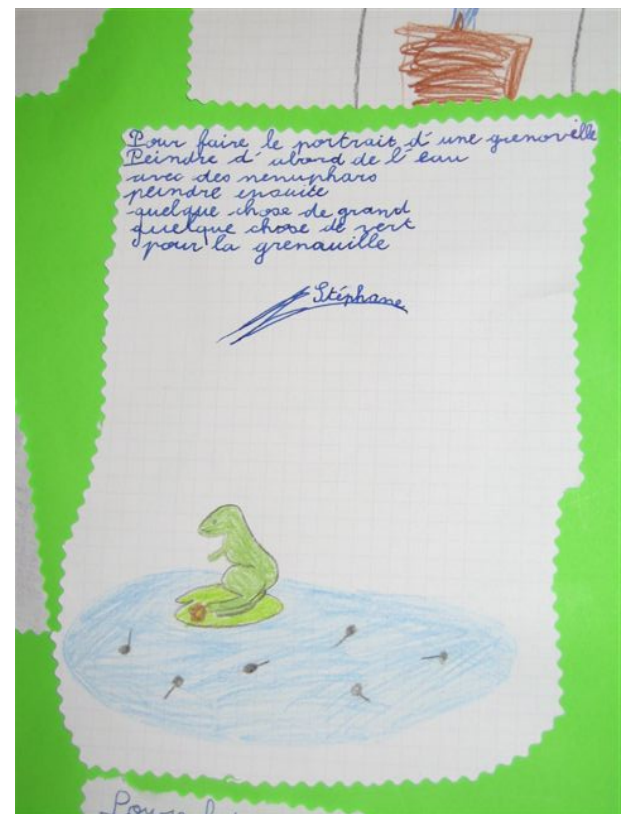 Pour faire le portrait d'une grenovelle
Peindre d'abord de l'eau
avec des nenuphars
peindre ensuite
quelque chose de grand
quelque chose de vert
pour la grenauille
Stéphane